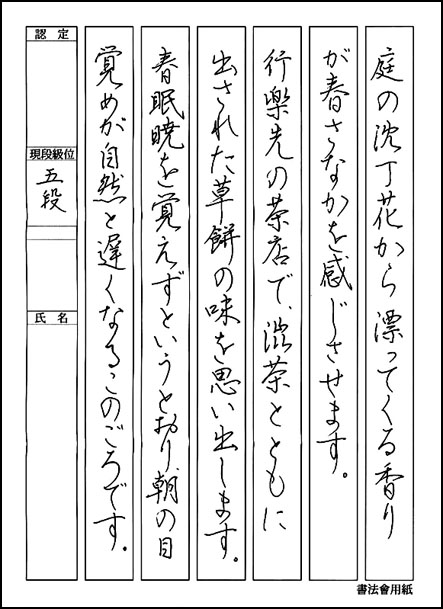 庭の沈丁花から漂ってくる香り
が春さなかを感じさせます。
行楽先の茶店で、渋茶とともに
出された草餅の味を思い出します。
春眠暁を覚えずというとおり、朝の目
覚めが自然と遅くなるこのごろです。
認定
現段級位
五段
氏名
書法會用紙